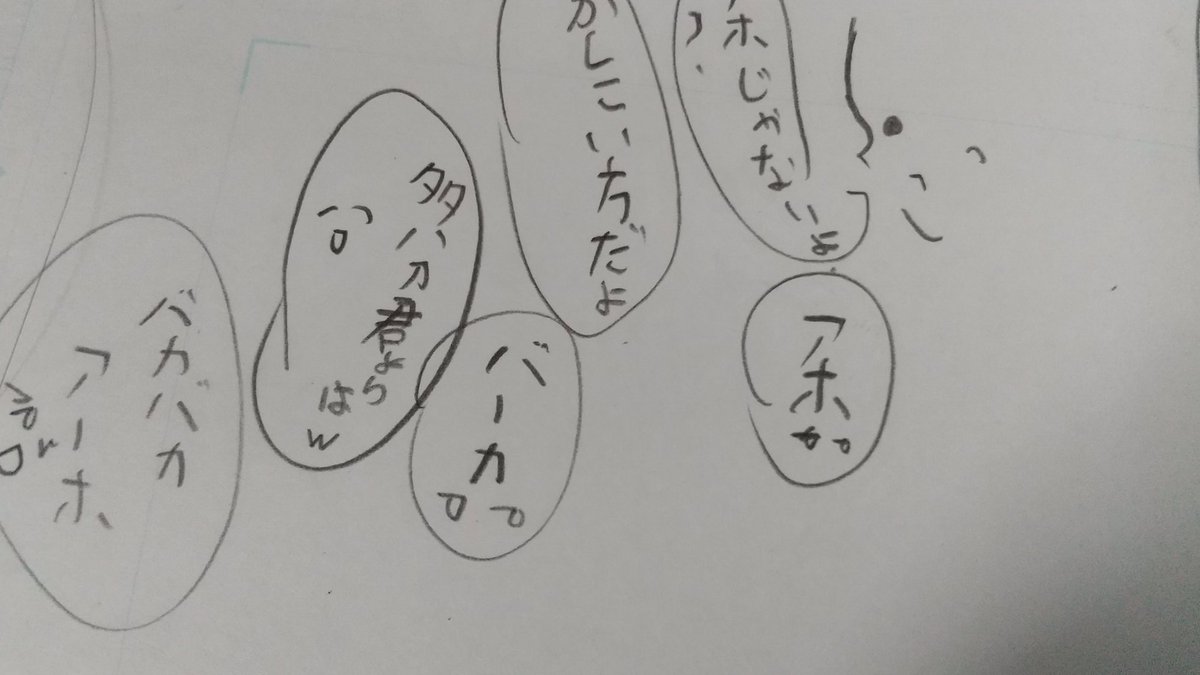 ホじゃないよ
アホか
かしこい方だよ
バーカ
多分君よら
はw
バカバカ
アーホ